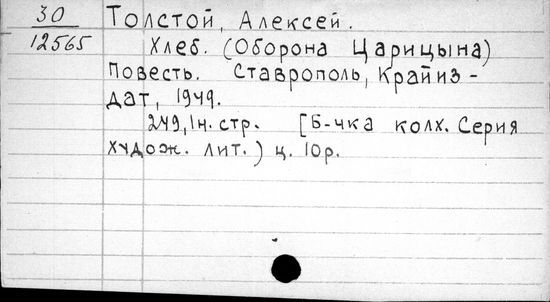 30
12565
Толстой, Алексей.
Хлеб. (Оборона Царицына)
Повесть. Ставрополь, Крайиз-
дат, 1949.
249, 1н. стр. [Б-чка колх. Серия
худож. лит.) ц. 10р.